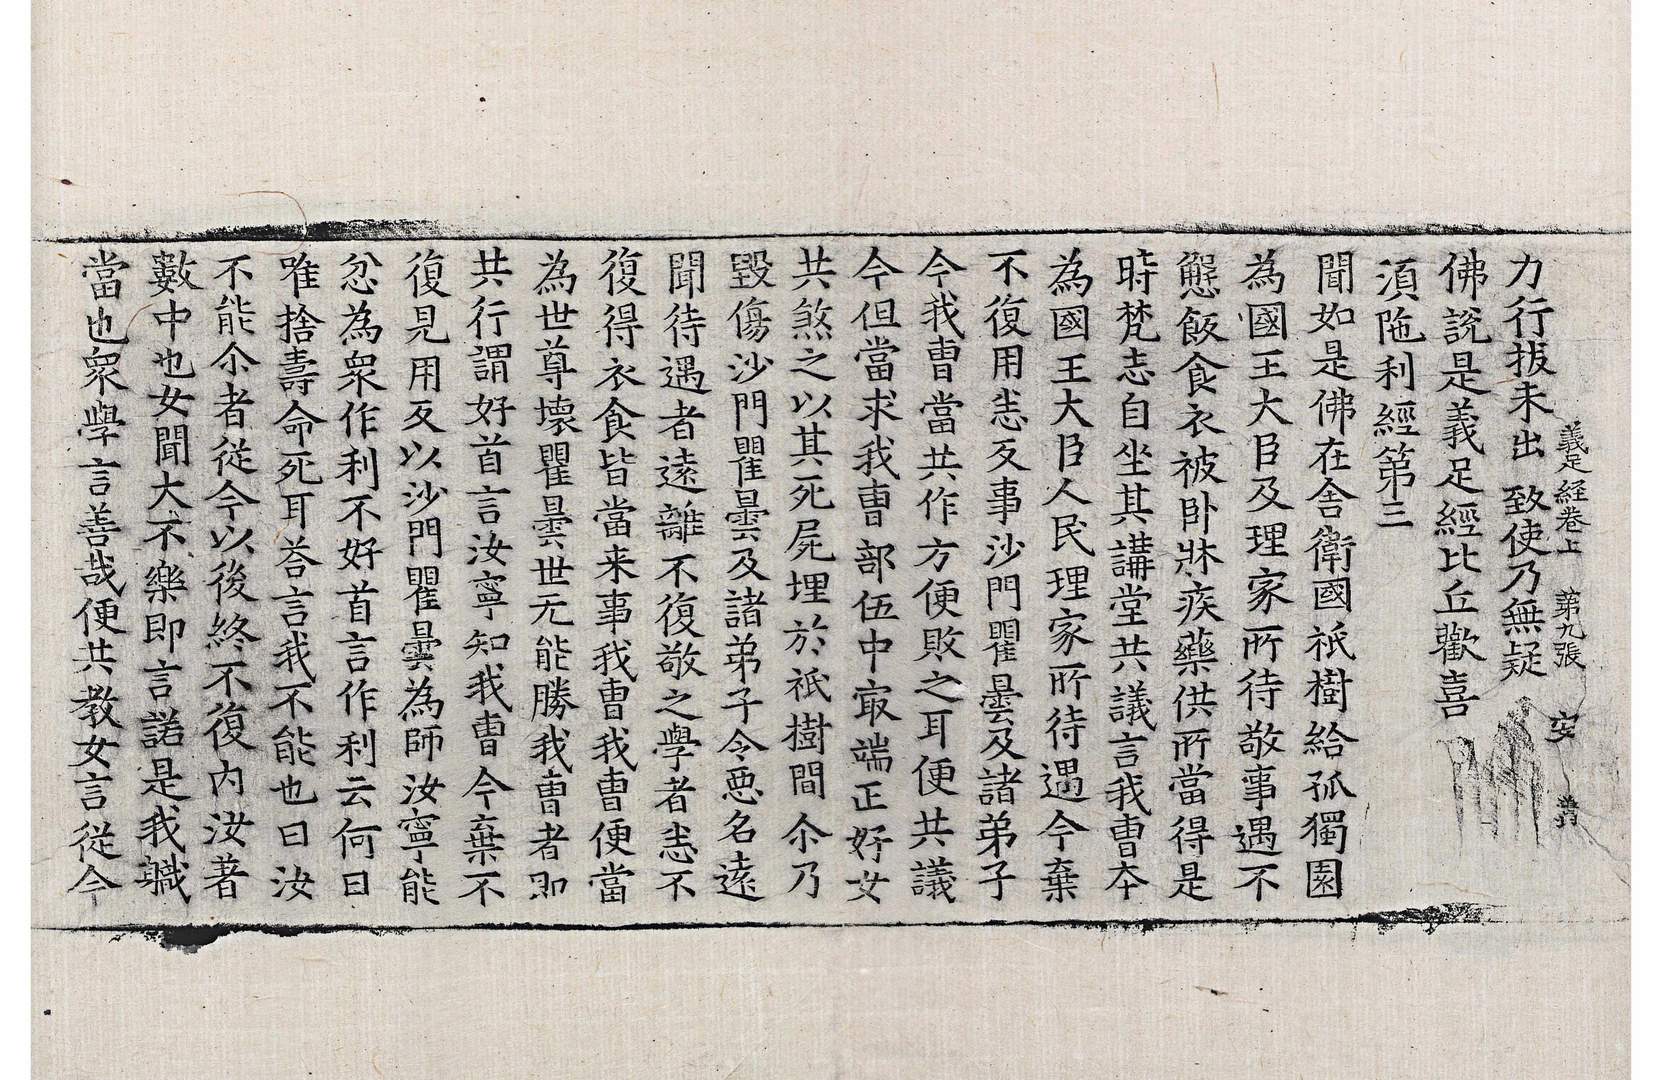 義足経卷上 第九張 安
力行拔未出 致使乃無疑
佛說是義足經比丘歡喜
湏陁利經第三
聞如是佛在舍衛國祇樹給孤獨園
為國王大臣及理家所待敬事遇不
懈飯食衣被卧牀疾藥供所當得是
時梵志自坐其講堂共議言我曹夲
為國王大臣人民理家所待遇今棄
不復用恙反事沙門瞿曇及諸弟子
今我曺當共作方便敗之耳便共議
今但當求我曺部伍中㝡端正好女
共煞之以其死屍埋於祇樹間尒乃
毀傷沙門瞿曇及諸弟子令惡名遠
聞待遇者遠離不復敬之學者恙不
復得衣食皆當来事我曹我曹便當
為世尊壞瞿曇世无能勝我曺者即
共行謂好首言汝寧知我曺今棄不
復見用反以沙門瞿曇為師汝寧能
忿為眾作利不好首言作利云何曰
唯捨壽命死耳荅言我不能也曰汝
不能尒者從今以後終不復內汝著
數中也女聞大不樂即言諾是我軄
當也眾學言善哉便共教女言從今